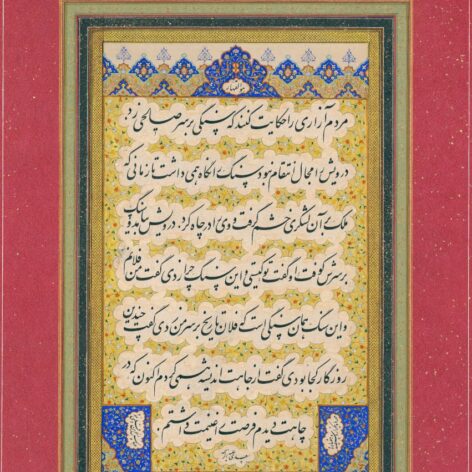 مردم آزاری را حکایت کنند که سنگی بر سر صالحی زد.
درویش را مجال انتقام نبود سنگ را نگاه همی داشت تا زمانی که
ملک بر آن لشکری خشم گرفت و وی را در چاه کرد. درویش بیامد و سنگ
بر سرش کوفت او گفت تو کیستی و این سنگ چرا زدی گفت من فلانم
و این سنگ همان سنگی است که فلان تاریخ بر سر من زدی گفت چندین
روزگار کجا بودی گفت از جاهت اندیشه همی کردم کنون که در
چاهت دیدم فرصت را غنیمت داشتم.